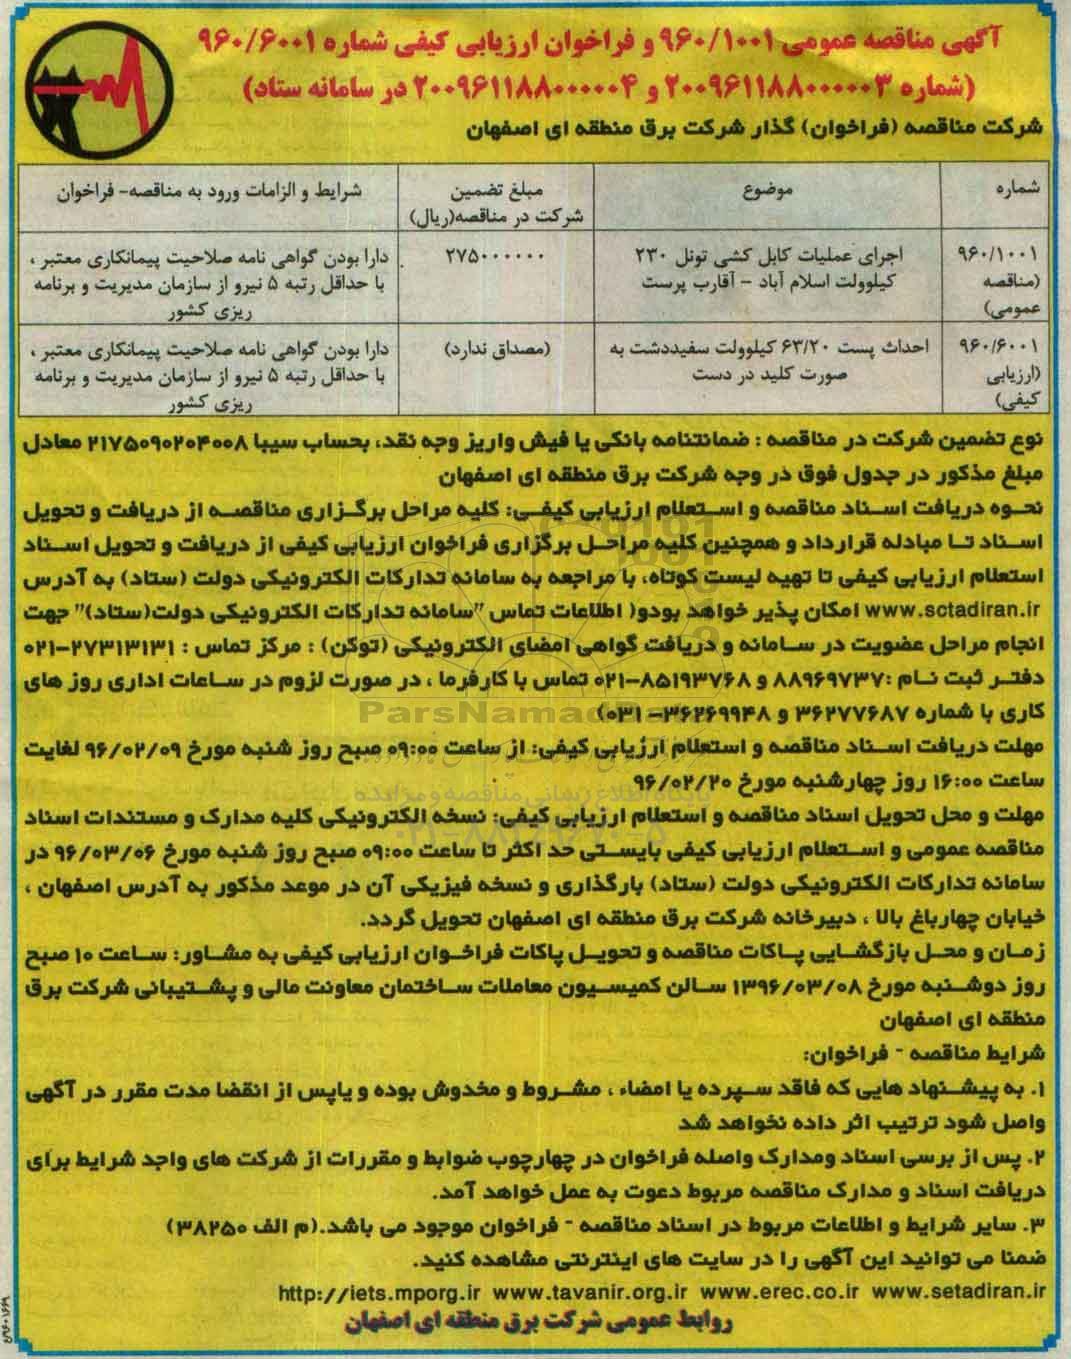 آگهی مناقصه عمومی ۹۶۰/۱۰۰۱ و فراخوان ارزیابی کیفی شماره ۹۶۰/۶۰۰۱
(شماره ۲۰۰۹۶۱۱۸۸۰۰۰۰۰۳ و ۲۰۰۹۶۱۱۸۸۰۰۰۰۰۴ در سامانه ستاد)
شرکت مناقصه (فراخوان) گذار شرکت برق منطقه ای اصفهان
شماره | موضوع | مبلغ تضمین شرکت در مناقصه(ریال) | شرایط و الزامات ورود به مناقصه- فراخوان
۹۶۰/۱۰۰۱ (مناقصه عمومی) | اجرای عملیات کابل کشی تونل ۲۳۰ کیلوولت اسلام آباد - آقارب پرست | ۲۷۵۰۰۰۰۰۰ | دارا بودن گواهی نامه صلاحیت پیمانکاری معتبر ، با حداقل رتبه ۵ نیرو از سازمان مدیریت و برنامه ریزی کشور
۹۶۰/۶۰۰۱ (ارزیابی کیفی) | احداث پست ۶۳/۲۰ کیلوولت سفیددشت به صورت کلید در دست | (مصداق ندارد) | دارا بودن گواهی نامه صلاحیت پیمانکاری معتبر ، با حداقل رتبه ۵ نیرو از سازمان مدیریت و برنامه ریزی کشور
نوع تضمین شرکت در مناقصه : ضمانتنامه بانکی یا فیش واریز وجه نقد، بحساب سیبا ۲۱۷۵۰۹۰۲۰۴۰۰۸ معادل
مبلغ مذکور در جدول فوق در وجه شرکت برق منطقه ای اصفهان
نحوه دریافت اسناد مناقصه و استعلام ارزیابی کیفی: کلیه مراحل برگزاری مناقصه از دریافت و تحویل
اسناد تا مبادله قرارداد و همچنین کلیه مراحل برگزاری فراخوان ارزیابی کیفی از دریافت و تحویل اسناد
استعلام ارزیابی کیفی تا تهیه لیست کوتاه، با مراجعه به سامانه تدارکات الکترونیکی دولت (ستاد) به آدرس
www.sctadiran.ir امکان پذیر خواهد بودو( اطلاعات تماس "سامانه تدارکات الکترونیکی دولت(ستاد)" جهت
انجام مراحل عضویت در سامانه و دریافت گواهی امضای الکترونیکی (توکن) : مرکز تماس : ۲۷۳۱۳۱۳۱-۰۲۱
دفتر ثبت نام :۸۸۹۶۹۷۳۷ و ۸۵۱۹۳۷۶۸-۰۲۱ تماس با کارفرما ، در صورت لزوم در ساعات اداری روز های
کاری با شماره ۳۶۲۷۷۶۸۷ و ۳۶۲۶۹۹۴۸-۰۳۱)
مهلت دریافت اسناد مناقصه و استعلام ارزیابی کیفی: از ساعت ۰۹:۰۰ صبح روز شنبه مورخ ۹۶/۰۲/۰۹ لغایت
ساعت ۱۶:۰۰ روز چهارشنبه مورخ ۹۶/۰۲/۲۰
مهلت و محل تحویل اسناد مناقصه و استعلام ارزیابی کیفی: نسخه الکترونیکی کلیه مدارک و مستندات اسناد
مناقصه عمومی و استعلام ارزیابی کیفی بایستی حد اکثر تا ساعت ۰۹:۰۰ صبح روز شنبه مورخ ۹۶/۰۳/۰۶ در
سامانه تدارکات الکترونیکی دولت (ستاد) بارگذاری و نسخه فیزیکی آن در موعد مذکور به آدرس اصفهان ،
خیابان چهارباغ بالا ، دبیرخانه شرکت برق منطقه ای اصفهان تحویل گردد.
زمان و محل بازگشایی پاکات مناقصه و تحویل پاکات فراخوان ارزیابی کیفی به مشاور: ساعت ۱۰ صبح
روز دوشنبه مورخ ۱۳۹۶/۰۳/۰۸ سالن کمیسیون معاملات ساختمان معاونت مالی و پشتیبانی شرکت برق
منطقه ای اصفهان
شرایط مناقصه - فراخوان:
۱. به پیشنهاد هایی که فاقد سپرده یا امضاء ، مشروط و مخدوش بوده و یاپس از انقضا مدت مقرر در آگهی
واصل شود ترتیب اثر داده نخواهد شد
۲. پس از برسی اسناد ومدارک واصله فراخوان در چهارچوب ضوابط و مقررات از شرکت های واجد شرایط برای
دریافت اسناد و مدارک مناقصه مربوط دعوت به عمل خواهد آمد.
۳. سایر شرایط و اطلاعات مربوط در اسناد مناقصه - فراخوان موجود می باشد.(م الف ۳۸۲۵۰)
ضمنا می توانید این آگهی را در سایت های اینترنتی مشاهده کنید.
http://iets.mporg.ir www.tavanir.org.ir www.erec.co.ir www.setadiran.ir
روابط عمومی شرکت برق منطقه ای اصفهان
ParsNamadData
پایگاه اطلاع رسانی مناقصه و مزایده